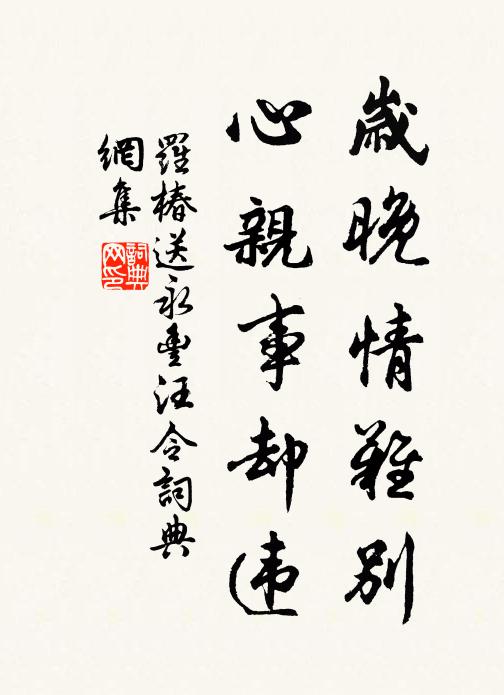 歲晚情難別
心親事却違
羅椿送永豐汪令詞典
網集
詞典网印